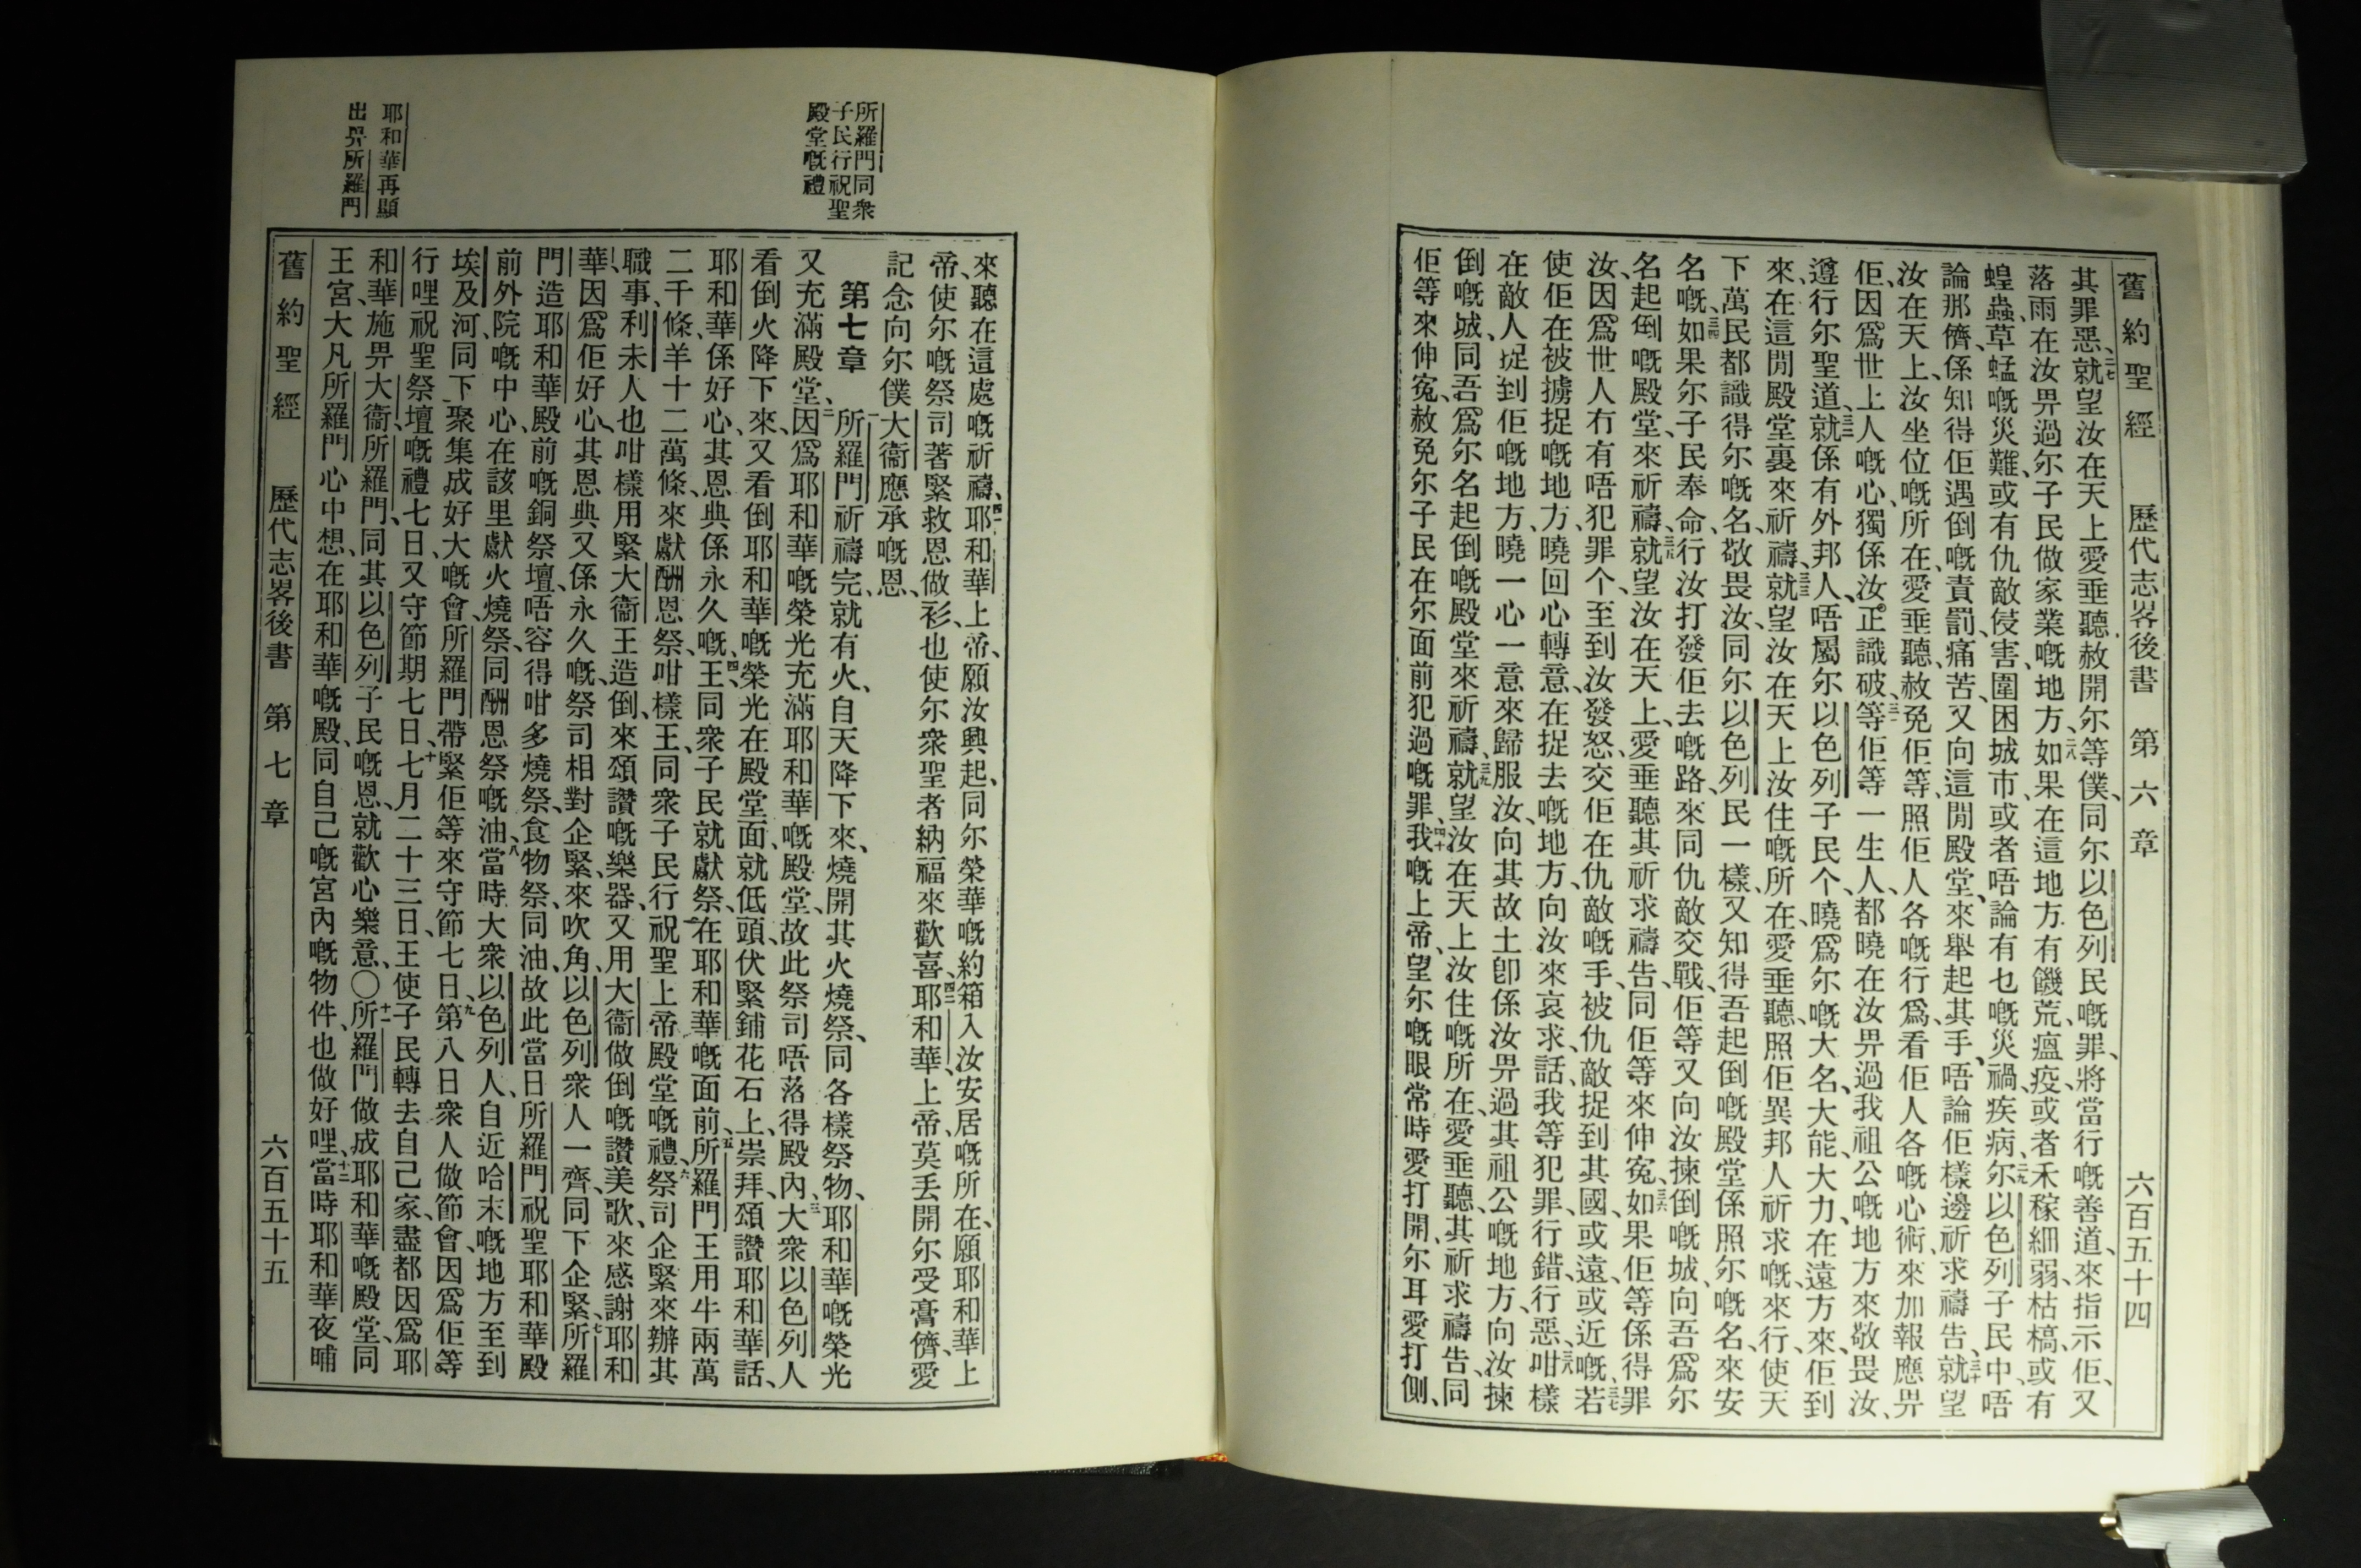 舊約聖經　歷代志畧後書　第六章　六百五十四
其罪惡、二七就望汝在天上愛垂聽、赦開尔等僕、同尔以色列民嘅罪、將當行嘅善道、來指示佢、又
落雨在汝畀過尔子民做家業嘅地方、二八如果在這地方有饑荒、瘟疫、或者禾稼細弱、枯槁、或有
蝗蟲、草蜢嘅災難、或有仇敵侵害、圍困城市、或者唔論有乜嘅災禍、疾病、二九尔以色列子民中、唔
論那儕、係知得佢遇倒嘅責罰、痛苦、又向這間殿堂、來舉起其手、唔論佢樣邊祈求禱告、三十就望
汝在天上、汝坐位嘅所在、愛垂聽、赦免佢等、照佢人各嘅行爲、看佢人各嘅心術、來加報應畀
佢、因爲世上人嘅心、獨係汝正識破、三一等佢等一生人、都曉在汝畀過我祖公嘅地方來敬畏汝、
遵行尔聖道、三二就係有外邦人、唔屬尔以色列子民个、曉爲尔嘅大名、大能、大力、在遠方來、佢到
來、在這間殿堂裏來祈禱、三三就望汝在天上汝住嘅所在、愛垂聽、照佢異邦人祈求嘅、來行、使天
下萬民都識得尔嘅名、敬畏汝、同尔以色列民一樣、又知得吾起倒嘅殿堂係照尔嘅名、來安
名嘅、三四如果尔子民奉命、行汝打發佢去嘅路、來同仇敵交戰、佢等又向汝揀倒嘅城、向吾爲尔
名起倒嘅殿堂、來祈禱、三五就望汝在天上、愛垂聽其祈求禱告、同佢等來伸寃、三六如果佢等係得罪
汝、因爲世人冇有唔犯罪个、至到汝發怒、交佢在仇敵嘅手、被仇敵捉到其國、或遠或近嘅、三七若
使佢在被擄捉嘅地方、曉回心轉意、在捉去嘅地方、向汝來哀求、話、我等犯罪、行錯、行惡、三八咁樣
在敵人捉到佢嘅地方、曉一心一意來歸服汝、向其故土卽係汝畀過其祖公嘅地方、向汝揀
倒嘅城、同吾爲尔名起倒嘅殿堂來祈禱、三九就望汝在天上汝住嘅所在、愛垂聽、其祈求禱告、同
佢等來伸寃、赦免尔子民在尔面前犯過嘅罪、四十我嘅上帝、望尔嘅眼常時愛打開、尔耳愛打側、
所羅門同衆
子民行祝聖
殿堂嘅禮
耶和華再顯
出畀所羅門
來聽在這處嘅祈禱、四一耶和華上帝、願汝興起、同尔榮華嘅約箱入汝安居嘅所在、願耶和華上
帝、使尔嘅祭司著緊救恩做衫、也使尔衆聖者納福來歡喜、四二耶和華上帝、莫丢開尔受膏儕、愛
記念向尔僕大衞應承嘅恩、
第七章　一所羅門祈禱完、就有火、自天降下來、燒開其火燒祭、同各樣祭物、耶和華嘅榮光
又充滿殿堂、二因爲耶和華嘅榮光充滿耶和華嘅殿堂、故此祭司唔落得殿內、三大衆以色列人
看倒火降下來、又看倒耶和華嘅榮光在殿堂面、就低頭、伏緊鋪花石上、崇拜、頌讚耶和華話、
耶和華係好心、其恩典係永久嘅、四王同衆子民就獻祭、在耶和華嘅面前、五所羅門王用牛兩萬
二千條、羊十二萬條、來獻酬恩祭、咁樣王同衆子民行祝聖上帝殿堂嘅禮、六祭司企緊來辦其
職事、利未人也咁樣用緊大衞王造倒、來頌讚嘅樂器、又用大衞做倒嘅讚美歌、來感謝耶和
華、因爲佢好心、其恩典又係永久嘅、祭司相對企緊、來吹角、以色列衆人一齊、同下企緊、七所羅
門造耶和華殿前嘅銅祭壇、唔容得咁多燒祭、食物祭、同油、故此當日所羅門祝聖耶和華殿
前外院嘅中心、在該里獻火燒祭、同酬恩祭嘅油、八當時大衆以色列人、自近哈末嘅地方至到
埃及河、同下聚集成好大嘅會、所羅門帶緊佢等來守節七日、九第八日衆人做節會、因爲佢等
行哩祝聖祭壇嘅禮七日、又守節期七日、十七月二十三日、王使子民轉去自己家、盡都因爲耶
和華、施畀大衞、所羅門、同其以色列子民嘅恩、就歡心樂意、〇十一所羅門做成耶和華嘅殿堂、同
王宮、大凡所羅門心中想、在耶和華嘅殿、同自己嘅宮內嘅物件、也做好哩、十二當時耶和華夜晡
舊約聖經　歷代志畧後書　第七章　六百五十五